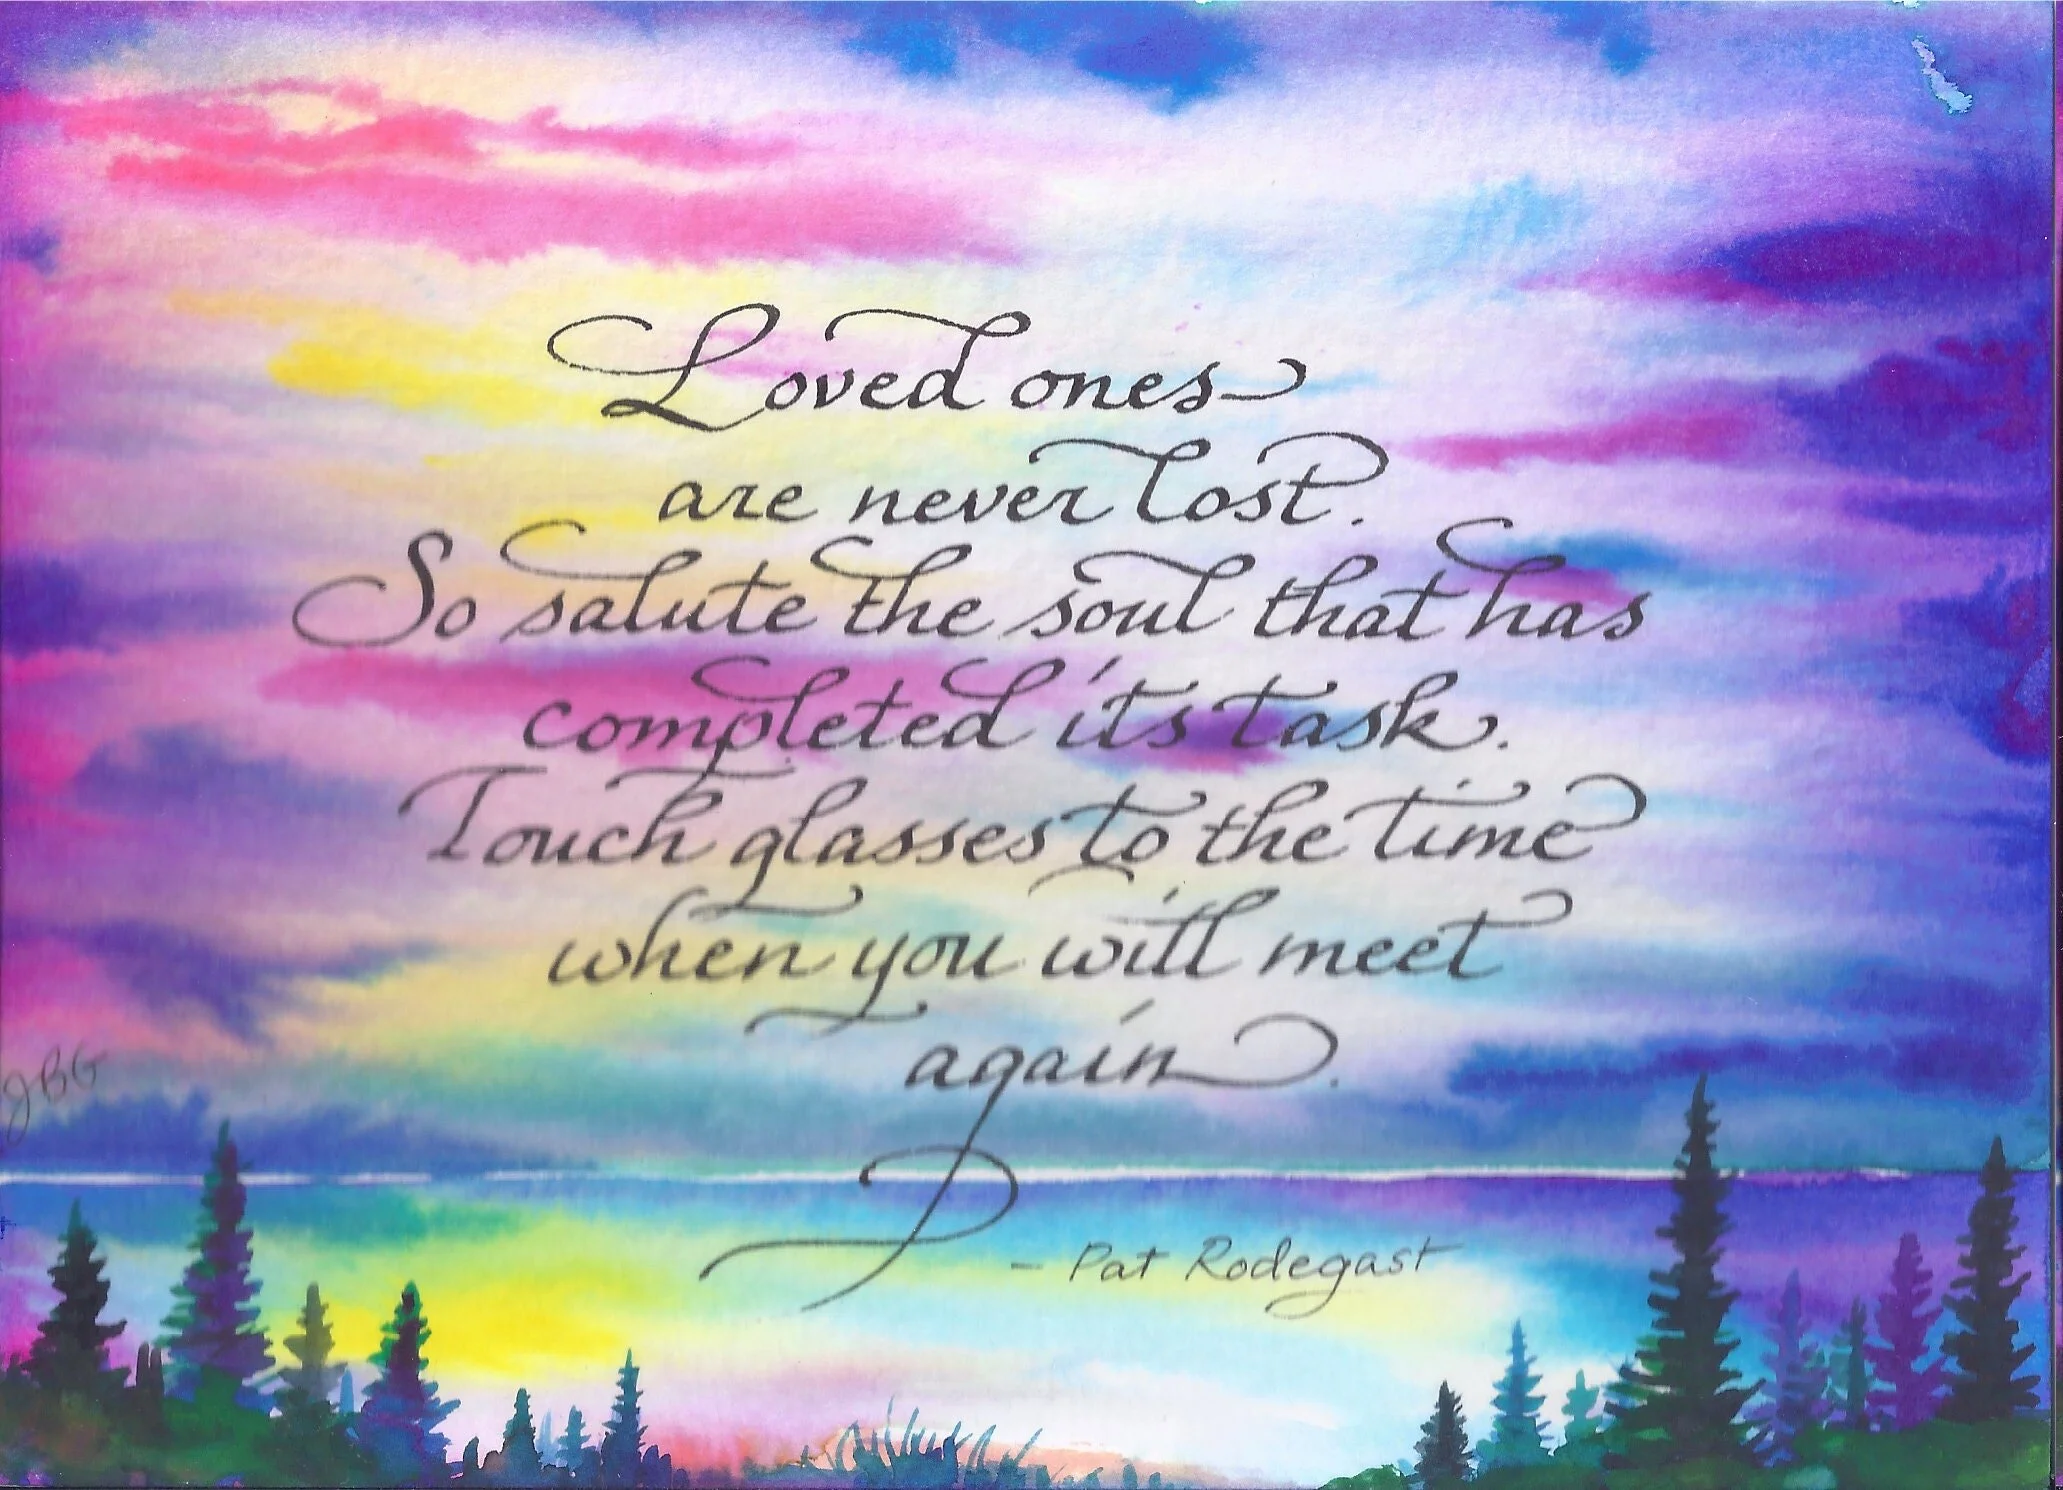 Loved ones
are never lost.
So salute the soul that has
completed it's task.
Touch glasses to the time
when you will meet
again.
- Pat Rodegast
JBG